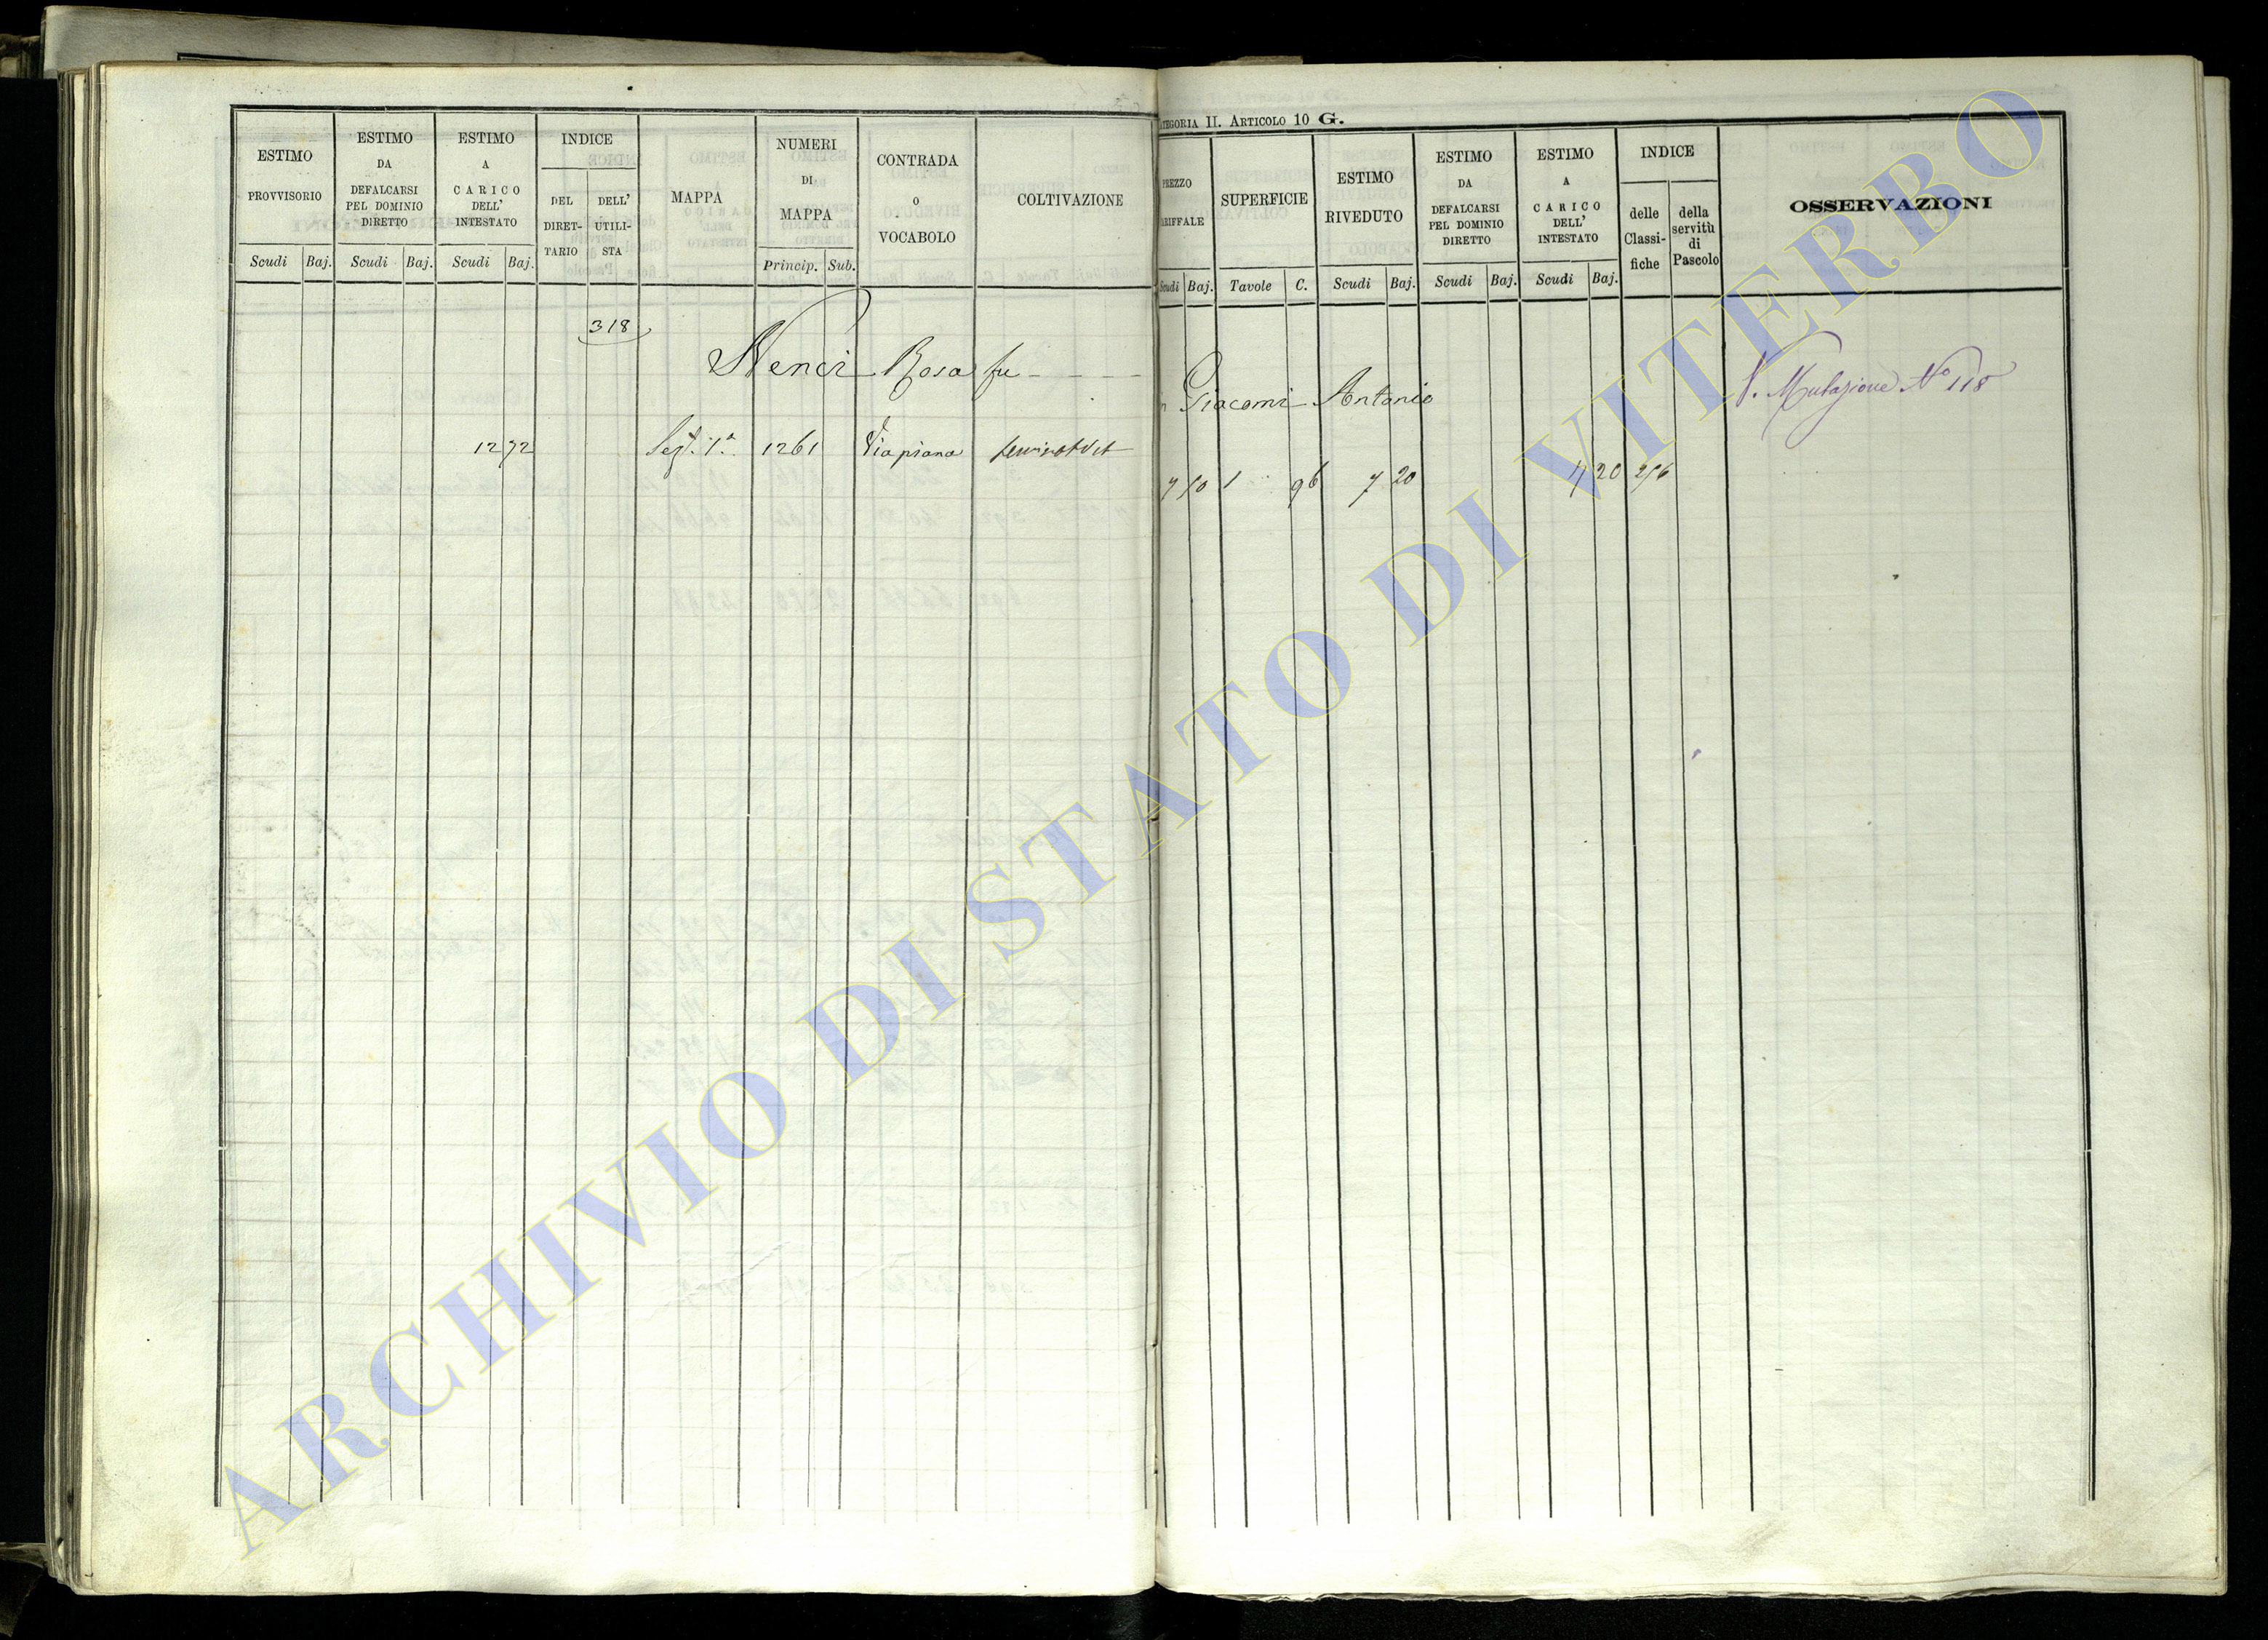 ESTIMO
PROVVISORIO
Scudi Baj.
ESTIMO
DA
DEFALCARSI
PEL DOMINIO
DIRETTO
Scudi Baj.
ESTIMO
A
CARICO
DELL'
INTESTATO
Scudi Baj.
INDICE
DEL
DIRET-
TARIO
DELL'
UTILI-
STA
MAPPA
NUMERI
DI
MAPPA
Princip. Sub.
CONTRADA
O
VOCABOLO
COLTIVAZIONE
318
Nenci Rosa fu
12 72 Sez. 1a 1261 Viapiana
ATEGORIA II. ARTICOLO 10 G.
PREZZO
ARIFFALE
Scudi Baj.
SUPERFICIE
Tavole C.
ESTIMO
RIVEDUTO
Scudi Baj.
ESTIMO
DA
DEFALCARSI
PEL DOMINIO
DIRETTO
Scudi Baj.
ESTIMO
A
CARICO
DELL'
INTESTATO
Scudi Baj.
INDICE
delle
Classi-
fiche
della
servitù
di
Pascolo
OSSERVAZIONI
Giacomi Antonio
V. Mutazione No 118
1 96 7 20 7 20
ARCHIVIO DI STATO DI VITERBO